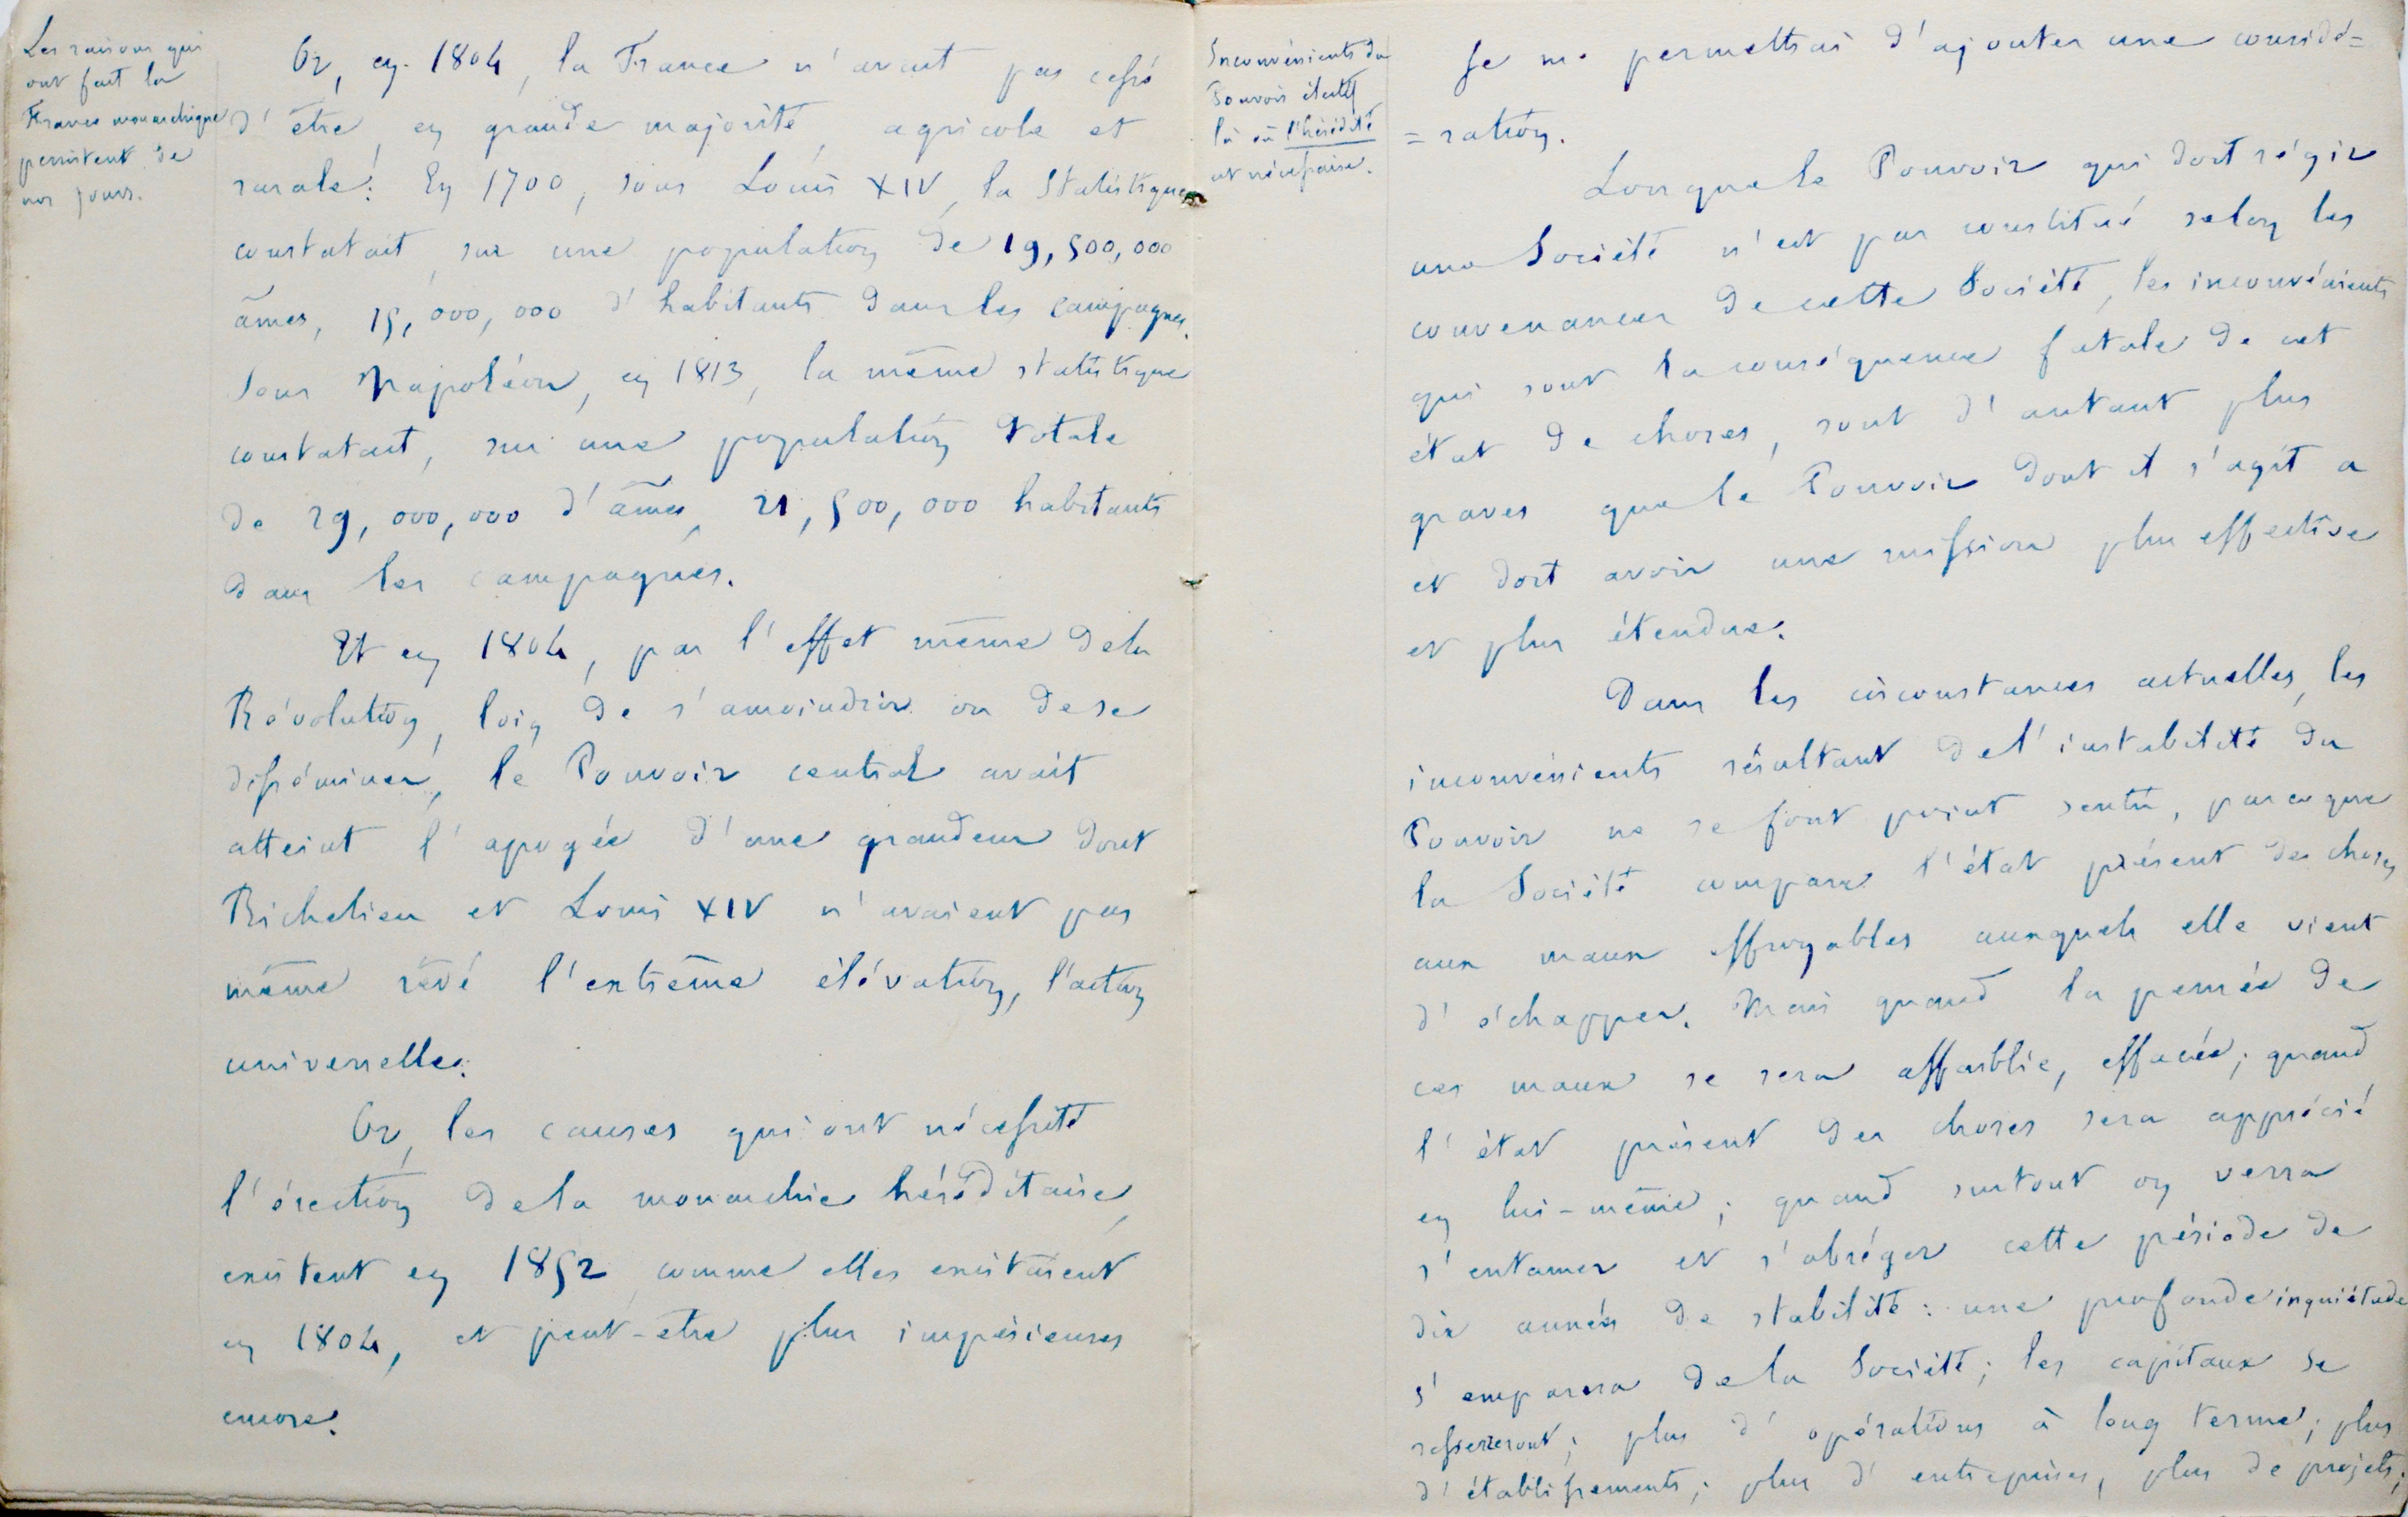 Les raisons qui
ont fait la
France monarchique
persistent de
nos jours.
Or, en 1804, la France n'avait pas cessé
d'être, en grande majorité, agricole et
rurale: En 1700, sous Louis XIV, la Statistique
constatait, sur une population de 19,500,000
âmes, 15,000,000 d'habitants dans les campagnes.
Sous Napoléon, en 1813, la même statistique
constatait, sur une population totale
de 29,000,000 d'âmes, 21,500,000 habitants
dans les campagnes.
Et en 1804, par l'effet même de la
Révolution, loin de s'amoindrir ou de se
disséminer, le Pouvoir central avait
atteint l'apogée d'une grandeur dont
Richelieu et Louis XIV n'avaient pas
même rêvé l'extrême élévation, l'action
universelle.
Or, les causes qui ont nécessité
l'érection de la monarchie héréditaire,
existent en 1852 comme elles existaient
en 1804, et peut-être plus impérieuses
encore.
Inconvénients du
Pouvoir électif
là où l'hérédité
est nécessaire.
Je me permettrai d'ajouter une considé=
=ration.
Lorsque le Pouvoir qui doit régir
une Société n'est pas constitué selon les
convenances de cette Société, les inconvénients
qui sont la conséquence fatale de cet
état de choses, sont d'autant plus
graves que le Pouvoir dont il s'agit a
et doit avoir une mission plus effective
et plus étendue.
Dans les circonstances actuelles, les
inconvénients résultant de l'instabilité du
Pouvoir ne se font point sentir, parce que
la Société compare l'état présent des choses
aux maux effroyables auxquels elle vient
d'échapper. Mais quand la pensée de
ces maux se sera affaiblie, effacée; quand
l'état présent des choses sera apprécié
en lui-même; quand surtout on verra
s'entamer et s'abréger cette période de
dix années de stabilité: une profonde inquiétude
s'emparera de la Société; les capitaux se
resserreront; plus d'opérations à long terme; plus
d'établissements; plus d'entreprises, plus de projets;